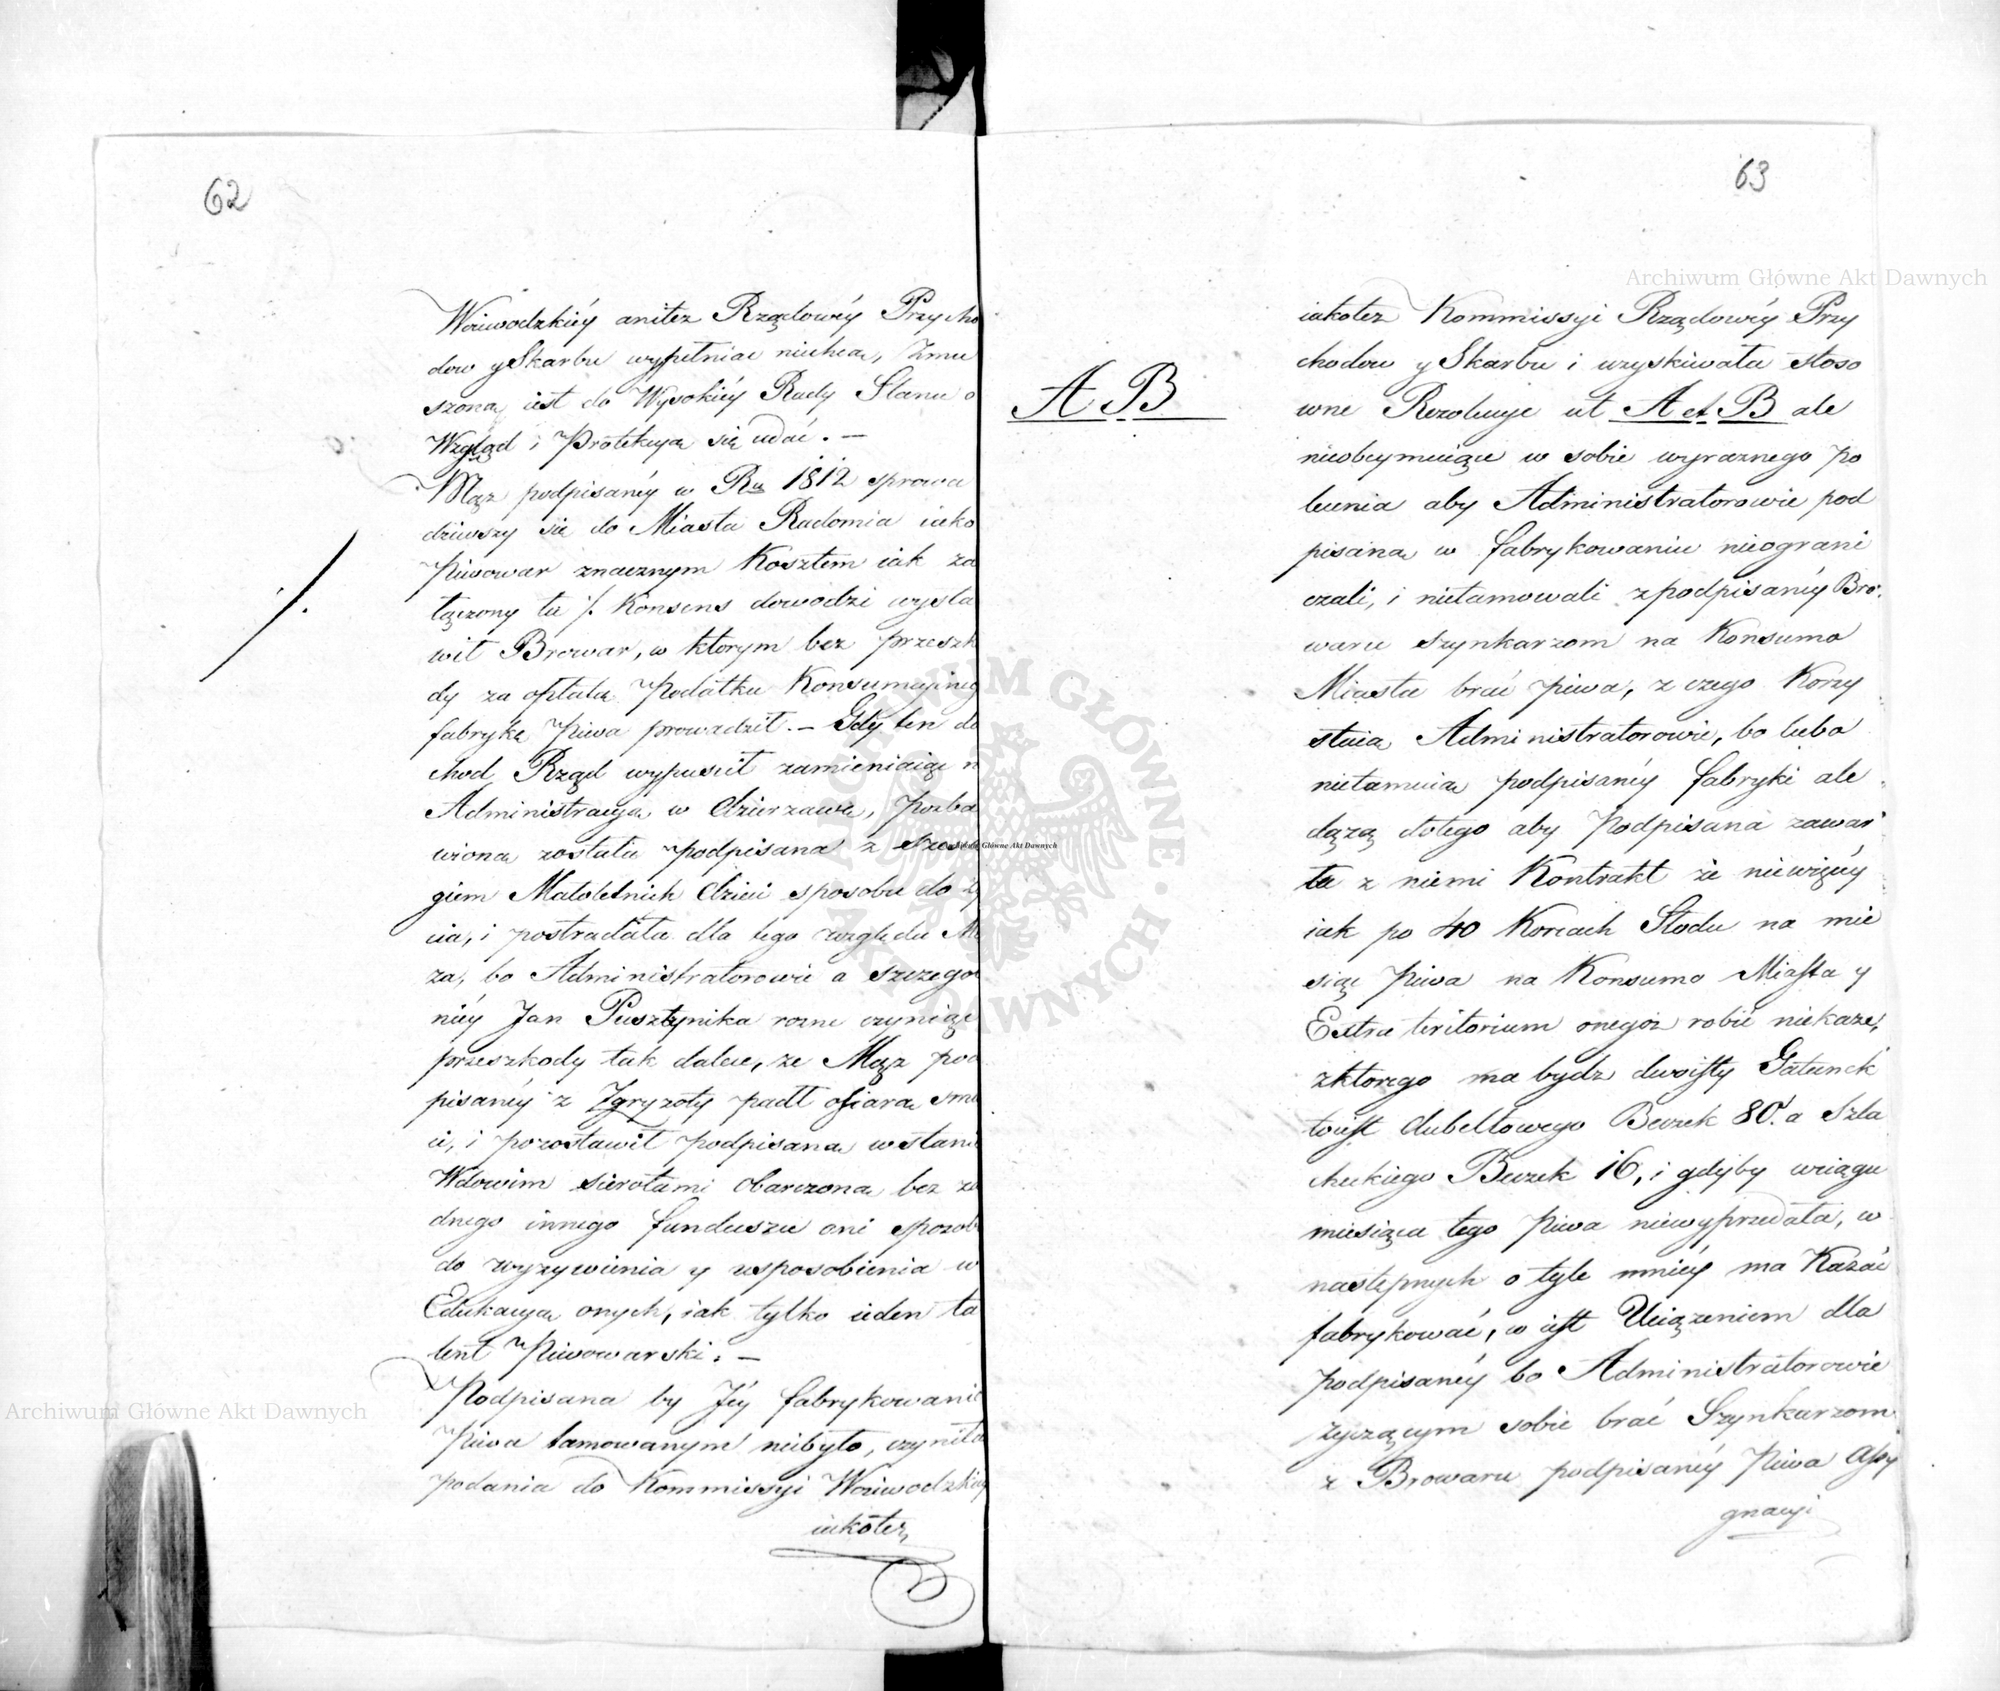 62
Woiewodzkiéy anitez Rządowéy Przycho
dow y Skarbu wypełniac niechca, Zmu
szoną iest do Wysokiéy Rady Stanu o
Wzgląd i Protekcyą się udać. —
Mąz podpisanéy w Ru 1812 sprowa
dziwszy sie do Miasta Radomia iako
Piwowar znacznym Kosztem iak za
łączony tu /. Konsens dowodzi wysta
/.
wił Browar, w ktorym bez przeszk
dy za opłatą Podatku Konsumcyineg
fabrykę Piwa prowadził. — Gdy ten do
chod Rząd wypuścił zamieniaiąc
Administracyą w dzierzawę, pozba
wioną została podpisana z
giem Małoletnich dzieci sposobu do ży
cia, i postradała dla tego względu Mę
za, bo Administratorowie a szczegol
niéy Jan Pusztynika rozne czyniąc
przeszkody tak dalece, ze Mąz pod
pisanéy z Zgryzoty padł ofiarą śmi
ci, i pozostawił podpisaną w stani
Wdowim sierotami obarczoną bez za
dnego innego funduszu ani sposob
do wyzywienia y usposobienia w
Edukacyą onych, iak tylko ieden ta
lent Piwowarski. —
Podpisana by Jéy fabrykowanie
Piwa tamowanym niebyło, czyniła
podania do Kommissyi Woiewodzkiéy
iakotez
63
iakotez Kommissyi Rządowéy Przy
chodow y Skarbu i uzyskiwała stoso
wne Rezolucye ut A et B ale
A B
nieobeymuiące w sobie wyraznego po
lecenia aby Administratorowie pod
pisaną w fabrykowaniu nieograni
czali, i nietamowali z podpisanéy Bro
waru szynkarzom na Konsumo
Miasta brać piwa, z czego Korzy
stuią Administratorowie, bo lubo
nietamuią podpisanéy fabryki ale
dązą dotego aby Podpisana zawar
ła z niemi Kontrakt że niewięcéy
iak po 40 Korcach Słodu na mie
siąc Piwa na Konsumo Miasta y
Extra teritorium onegoz robić niekaze,
z ktorego ma bydz dwoisty Gatunek
toiest dubeltowego Beczek 80. a Szla
checkiego Beczek 16, i gdyby wciągu
miesiąca tego Piwa niewyprzedała, w
następnych o tyle mniéy ma Kazać
fabrykować, co iest Uciązeniem dla
podpisanéy bo Administratorowie
zyczącym sobie brać Szynkarzom
z Browaru podpisanéy Piwa Assy
gnacyi
Archiwum Główne Akt Dawnych
Archiwum Główne Akt Dawnych